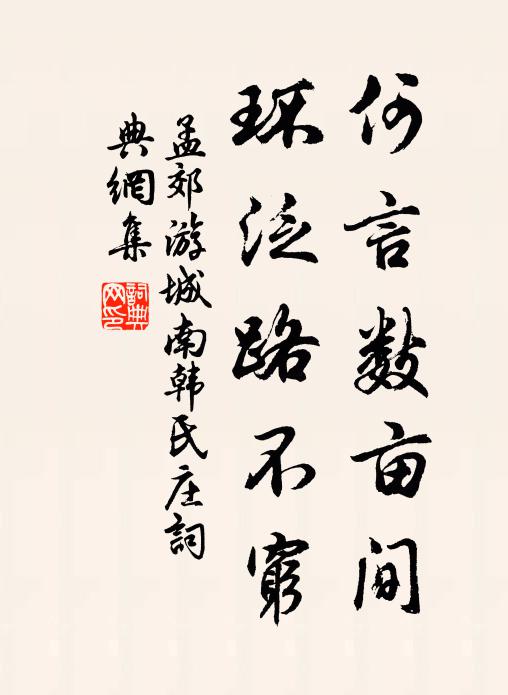 何言数亩间
环泛路不窮
孟郊游城南韩氏庄詞
典網集
詞典网印